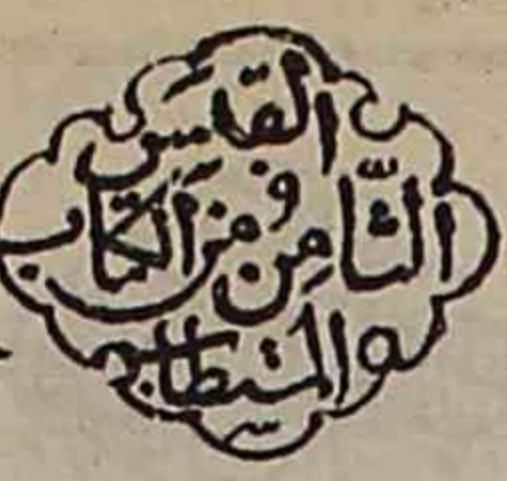 الثَّامِن مِن الكتاب
المستطاب